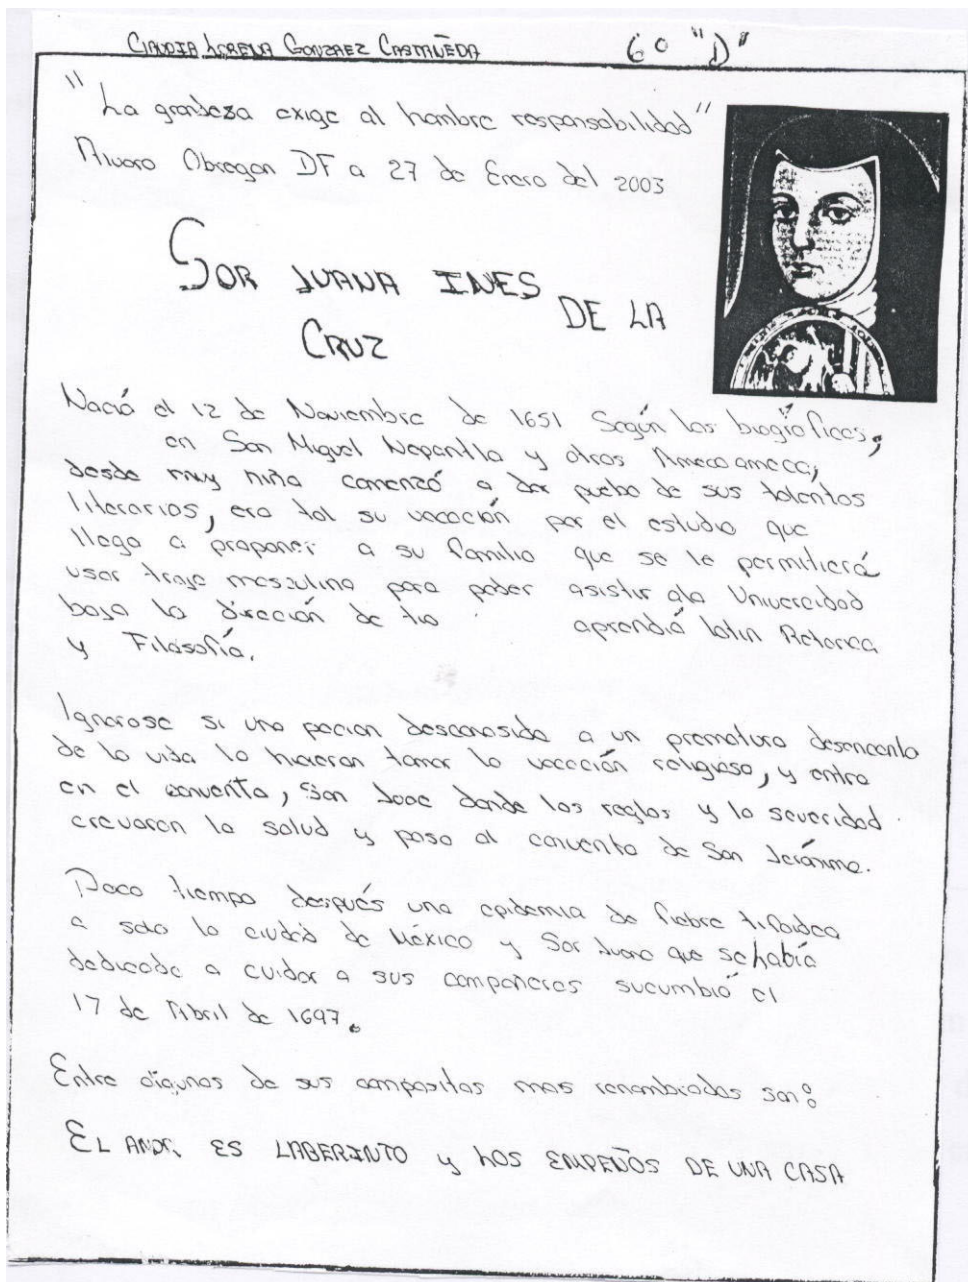 CLAUDIA LORENA GONZAEZ CASTAÑEDA 6o "D"
"La grandeza exige al hombre responsabilidad"
Alvaro Obregon DF a 27 de Enero del 2003
SOR JUANA INES DE LA
CRUZ
Nació el 12 de Noviembre de 1651 Según los biográficos,
en San Miguel Nepantla y otros Amecameca,
desde muy niña comenzó a dar pueba de sus talentos
literarios, era tal su vocación por el estudio que
llego a proponer a su familia que se le permitierá
usar traje masculino para poder asistir ala Universidad
bajo la dirección de tio aprendió latin Retorica
y Filosofía.
Ignorase si una pacion desconosida a un prematuro desencanto
de la vida la hicieran tomar la vocación religiosa, y entro
en el convento, San Jose donde las reglas y la severidad
crevaron la salud y paso al convento de San Jerónimo.
Poco tiempo después una epidemia de fiebre tifoidea
a soto la ciudad de México y Sor Juana que se había
dedicado a cuidar a sus compañeras sucumbió el
17 de Abril de 1697.
Entre algunos de sus compositos mas renombrados son:
EL AMOR ES LABERINTO y LOS EMPEÑOS DE UNA CASA